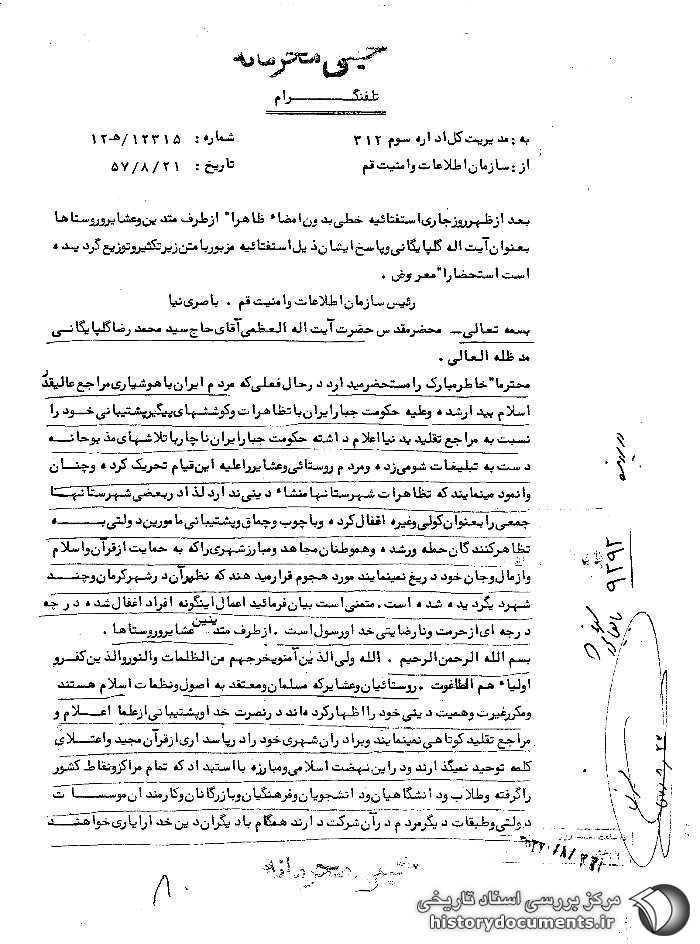 خیلی محرمانه
تلفنگــــــرام
به: مدیریت کل اداره سوم ۳۱۲
شماره: ۱۲۳۱۵/هـ۱۲
از: سازمان اطلاعات و امنیت قم
تاریخ: ۵۷/۸/۲۱
بعد از ظهر روز جاری استفتائیه خطی بدون امضاء ظاهرا" از طرف متدین و عشایر و روستاها
بعنوان آیت اله گلپایگانی و پاسخ ایشان ذیل استفتائیه مزبور با متن زیر تکثیر و توزیع گردیده
است استحضارا" معروض .
رئیس سازمان اطلاعات و امنیت قم . باصری نیا
بسمه تعالی ـ محضر مقدس حضرت آیت اله العظمی آقای حاج سید محمد رضا گلپایگانی
مد ظله العالی .
محترما" خاطر مبارک را مستحضر میدارد در حال فعلی که مردم ایران با هوشیاری مراجع عالیقدر
اسلام بیدار شده و علیه حکومت جبار ایران با تظاهرات و کوششهای پیگیر پشتیبانی خود را
نسبت به مراجع تقلید بدنیا اعلام داشته حکومت جبار ایران ناچار با تلاشهای مذبوحانه
دست به تبلیغات شومی زده و مردم روستائی و عشایر را علیه این قیام تحریک کرده و چنان
وانمود مینمایند که تظاهرات شهرستانها منشاء دینی ندارد لذا در بعضی شهرستانها
جمعی را بعنوان کولی و غیره اقفال کرده و با چوب و چماق و پشتیبانی مامورین دولتی بـــه
تظاهر کنندگان حمله ور شده و هموطنان مجاهد و مبارز شهری را که به حمایت از قرآن و اسلام
و از مال و جان خود دریغ نمینمایند مورد هجوم قرار میدهند که نظیر آن در شهر کرمان و چنــد
شهر دیگر دیده شده است . متمنی است بیان فرمائید اعمال اینگونه افراد اغفال شده در چه
درجه ای از حرمت و نارضایتی خدا و رسول است . از طرف متدینین عشایر و روستاها .
بسم الله الرحمن الرحیم . الله ولی الذین آمنو یخرجهم من الظلمات والنور والذین کفرو
اولیاء هم الطاغوت . روستائیان و عشایر که مسلمان و معتقد به اصول و نظمات اسلام هستند
و مکرر غیرت و همیت دینی خود را اظهار کرده اند در نصرت خدا و پشتیبانی از علما اعلام و
مراجع تقلید کوتاهی نمینمایند و برادران شهری خود را در پاسداری از قرآن مجید و اعتلای
کلمه توحید نمیگذارند و در این نهضت اسلامی و مبارزه با استبداد که تمام مراکز و نقاط کشور
را گرفته و طلاب و دانشگاهیان و دانشجویان و فرهنگیان و بازرگانان و کارمندان موسسات
دولتی و طبقات دیگر مردم در آن شرکت دارند همگام با دیگران دین خدا را یاری خواهند
۹۲۹۲
خیلی محرمانه
۸۰
مرکز بررسی اسناد تاریخی
historydocuments.ir